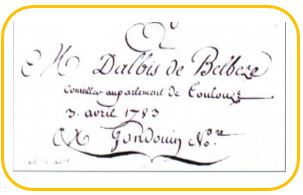 M Dalbis de Belbeze
Conseiller au parlement de Toulouze
3. avril 1783
M Gondouin No.re